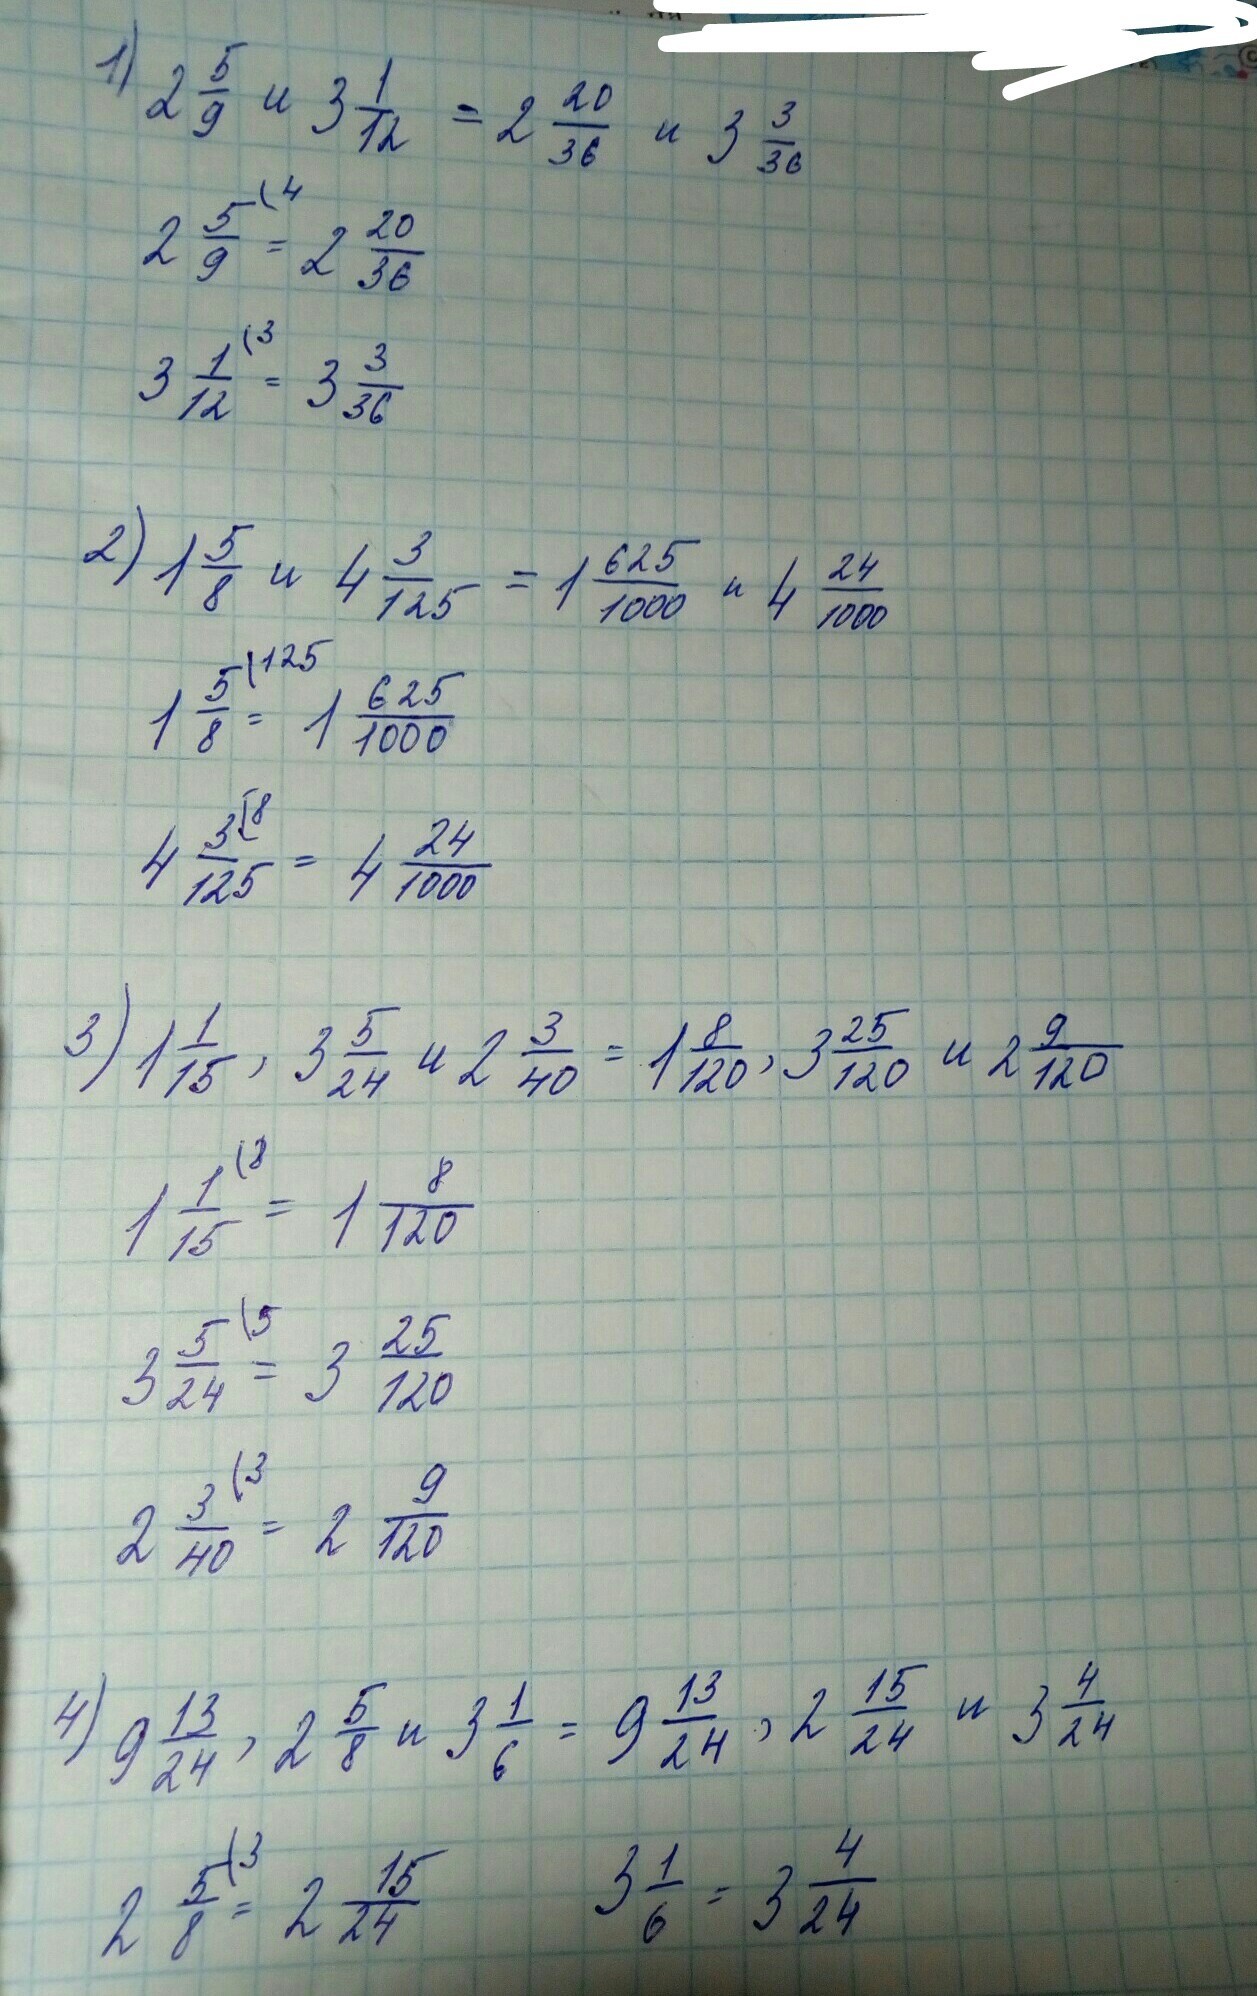 1) 2 5/9 и 3 1/12 = 2 20/36 и 3 3/36
2 5/9 (4 = 2 20/36
3 1/12 (3 = 3 3/36
2) 1 5/8 и 4 3/125 = 1 625/1000 и 4 24/1000
1 5/8 (125 = 1 625/1000
4 3/125 (8 = 4 24/1000
3) 1 1/15, 3 5/24 и 2 3/40 = 1 8/120, 3 25/120 и 2 9/120
1 1/15 (8 = 1 8/120
3 5/24 (5 = 3 25/120
2 3/40 (3 = 2 9/120
4) 9 13/24, 2 5/8 и 3 1/6 = 9 13/24, 2 15/24 и 3 4/24
2 5/8 (3 = 2 15/24 3 1/6 = 3 4/24